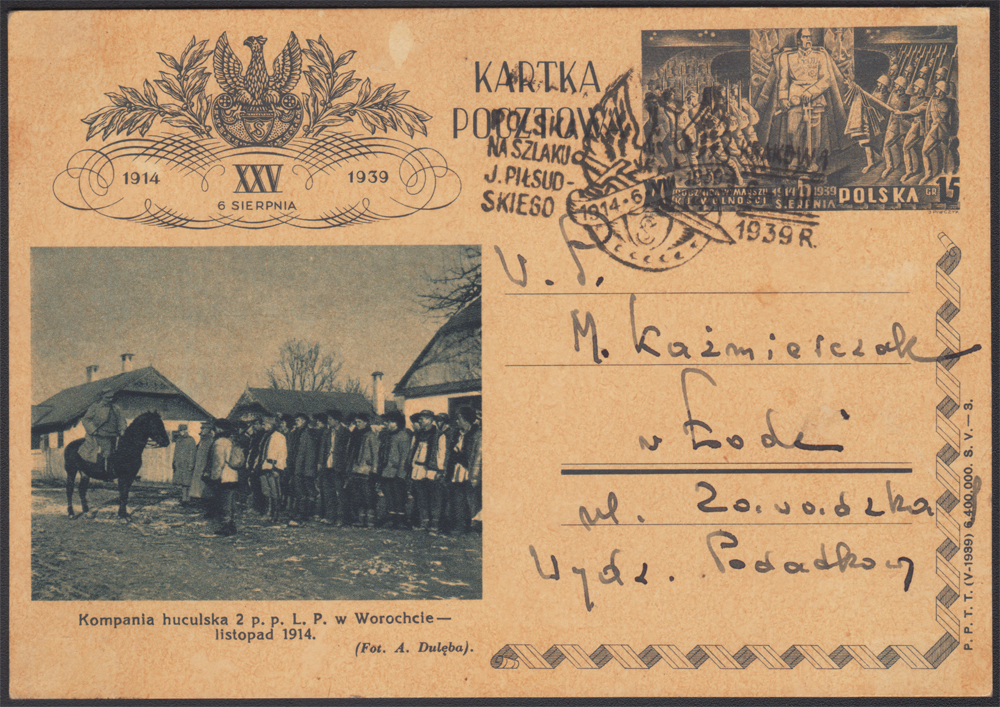 1914 XXV 1939
6 SIERPNIA
KARTKA
POCZTOWA
POLSKA
NA SZLAKU
J. PIŁSUD-
SKIEGO
1914-6
KRAKÓW 1
1939 R.
1914 6 1939
SIERPNIA
POLSKA GR 15
V. S.
M. Kaźmierczak
w Łodzi
ul. Zawadzka
Wydz. Podatkowy
Kompania huculska 2 p. p. L. P. w Worochcie—
listopad 1914.
(Fot. A. Dulęba).
P. P. T. T. (V-1939) 6.400.000. S. V. — 3.